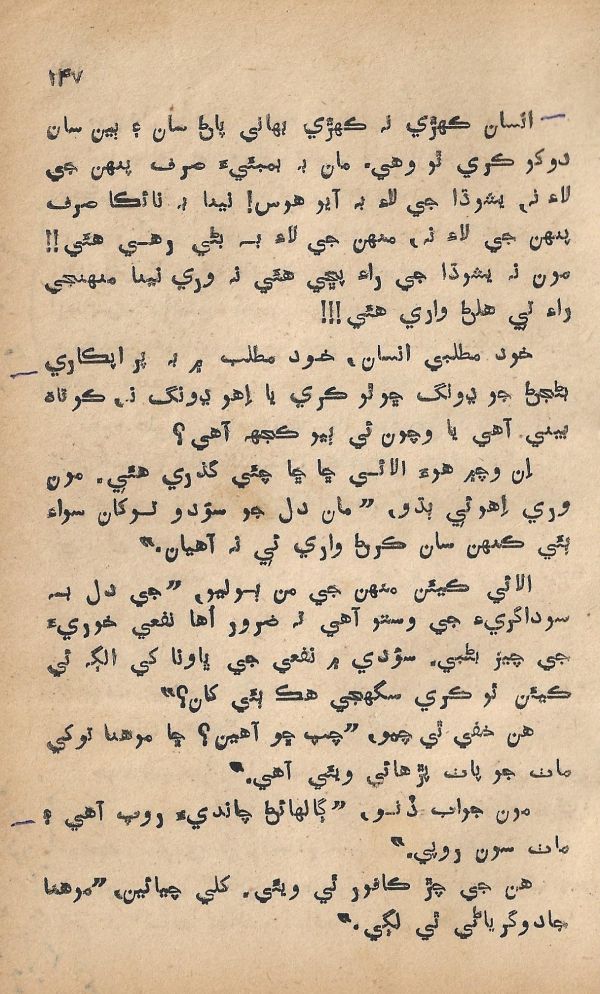 ۱۴۷
انسان ڪهڙي نہ ڪهڙي بهاني پاڻ سان ۽ ٻين سان
دوکو ڪري ٿو وهي. مان بہ بمبئيءَ صرف پنهن جي
لاءِ نہ، يشوڌا جي لاءِ بہ آيو هوس! نينا بہ ناٽڪا صرف
پنهن جي لاءِ نہ، منهن جي لاءِ بہ بڻي رهي هئي!!
مون تہ يشوڌا جي راءِ پڇي هئي تہ وري نينا منهنجي
راءِ تي هلڻ واري هئي!!!
خود مطلبي انسان، خود مطلب ۾ بہ پر اپڪاري
بڻجڻ جو ڍونگ ڇو ٿو ڪري يا اِهو ڍونگ نہ، ڪوتاه
بيني آهي يا وچون ئي ٻيو ڪجهہ آهي؟
اِن وچ ۾ هوءَ الائسي ڇا ڇا چئي گذري هئي. مون
وري اِهوئي ٻڌو، ”مان دل جو سؤدو توکان سواءِ
ٻئي ڪنهن سان ڪرڻ واري ئي نہ آهيان.“
الائي ڪيئن منهن جي من ٻوليو، ”جي دل بہ
سوداگريءَ جي وستو آهي تہ ضرور اُها نفعي خوريءَ
جي چيز بڻبي. سؤدي ۾ نفعي جي ڀاونا کي الڳ ئي
ڪيئن ٿو ڪري سگهجي هڪ ٻئي کان؟“
هن خفي ٿي چيو، ”چپ ڇو آهين؟ ڇا موهنا توکي
مات جو پاٺ پڙهائي ويئي آهي.“
مون جواب ڏنو، ”ڳالهائڻ چانديءَ روپ آهي ۽
مات سون روپي.“
هن جي چڙ ڪافور ٿي ويئي. کلي چيائين، ”موهنا
جادوگرياڻي ٿي لڳي.“